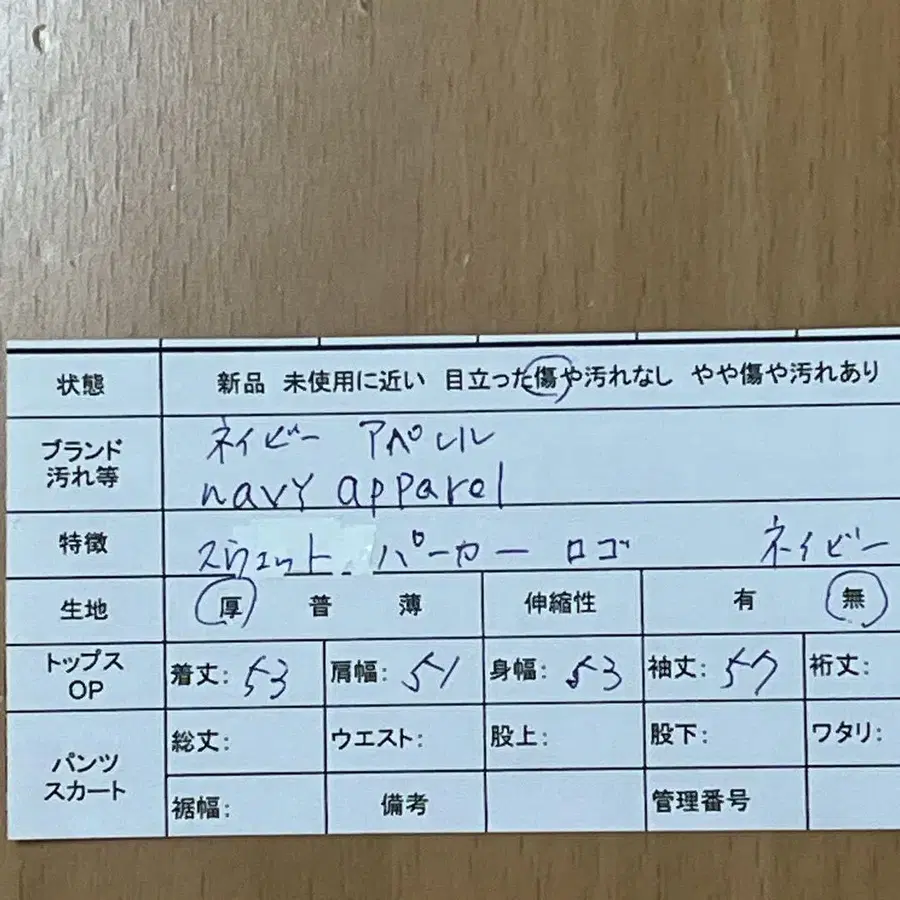 状態 新品 未使用に近い 目立った傷や汚れなし やや傷や汚れあり
ブランド 汚れ等 ネイビー アパレル
navy apparel
特徴 スウェット パーカー ロゴ ネイビー
生地 厚 普 薄 伸縮性 有 無
トップス OP 着丈: 53 肩幅: 51 身幅: 53 袖丈: 57 裄丈:
パンツ スカート 総丈: ウエスト: 股上: 股下: ワタリ:
裾幅: 備考 管理番号